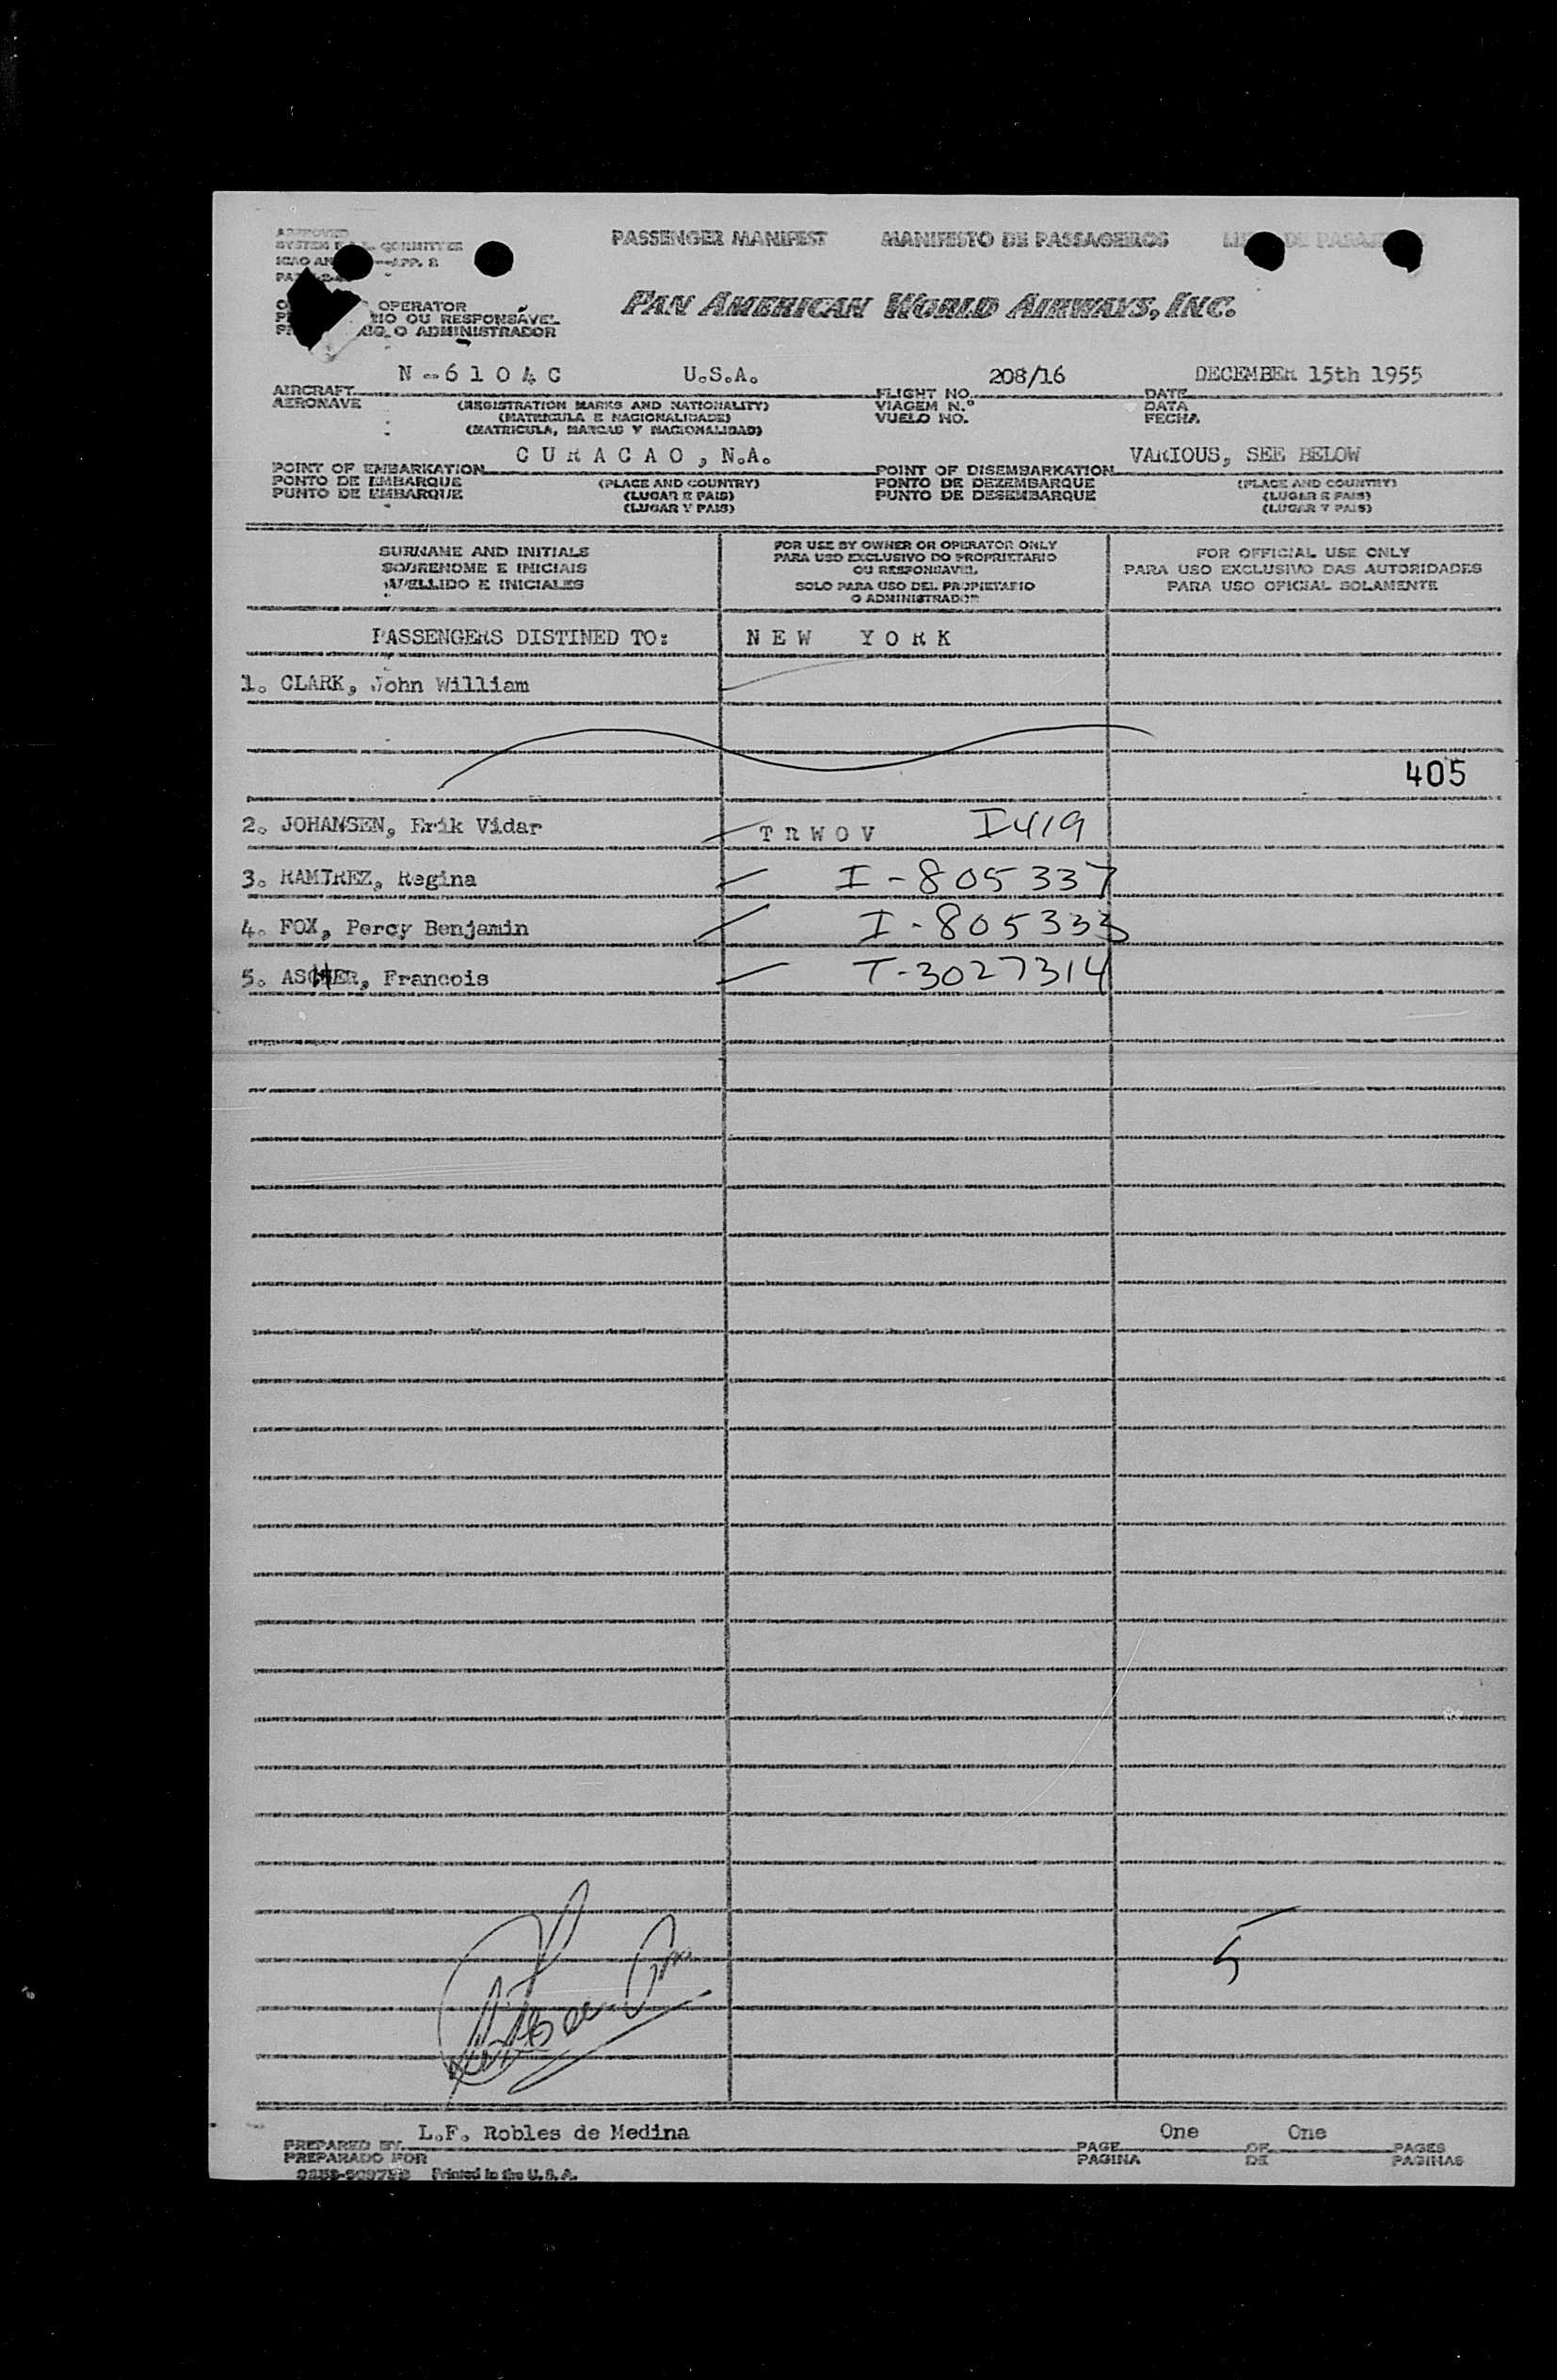 APPROVED
SYSTEM COMMITTEE
ICAO APP. 2
PASSENGER MANIFEST MANIFESTO DE PASSAGEIROS
OPERATOR
OU RESPONSÁVEL
O ADMINISTRADOR
PAN AMERICAN WORLD AIRWAYS, INC.
N-6 1 0 4 C U.S.A. 208/16 DECEMBER 15th 1955
AIRCRAFT FLIGHT NO. DATE
AERONAVE (REGISTRATION MARKS AND NATIONALITY) VIAGEM N.º DATA
(MATRICULA E NACIONALIDADE) VUELO NO. FECHA
(MATRICULA, MARCAS Y NACIONALIDAD)
C U R A C A O , N.A. VARIOUS, SEE BELOW
POINT OF EMBARKATION POINT OF DISEMBARKATION
PONTO DE EMBARQUE (PLACE AND COUNTRY) PONTO DE DEZEMBARQUE (PLACE AND COUNTRY)
PUNTO DE EMBARQUE (LUGAR E PAIS) PUNTO DE DESEMBARQUE (LUGAR E PAIS)
(LUGAR Y PAIS) (LUGAR Y PAIS)
SURNAME AND INITIALS
SOBRENOME E INICIAIS
APELLIDO E INICIALES
FOR USE BY OWNER OR OPERATOR ONLY
PARA USO EXCLUSIVO DO PROPRIETARIO
OU RESPONSAVEL
SOLO PARA USO DEL PROPIETARIO
O ADMINISTRADOR
FOR OFFICIAL USE ONLY
PARA USO EXCLUSIVO DAS AUTORIDADES
PARA USO OFICIAL SOLAMENTE
PASSENGERS DISTINED TO: N E W Y O R K
1. CLARK, John William
405
2. JOHANSEN, Erik Vidar T R W O V I419
3. RAMIREZ, Regina I-805337
4. FOX, Percy Benjamin I-805333
5. ASCHER, Francois T-3027314
5
L.F. Robles de Medina One One
PREPARED BY PAGE OF PAGES
PREPARADO POR PAGINA DE PAGINAS
Printed in the U.S.A.